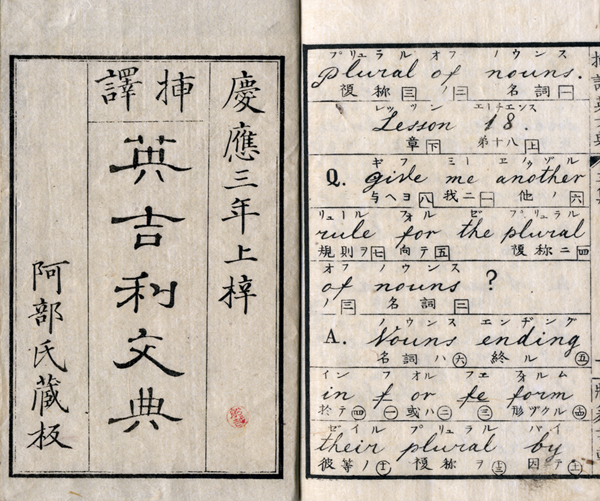 慶應三年上梓
挿譯
英吉利文典
阿部氏藏板
プリュラル オフ ノウンス
plural of nouns.
複称 三 ノ 二 名詞 一
レッソン エーチエンス
Lesson 18.
章 下 第十八 上
ギフ ミー エノゾル
Q. give me another
与ヘヨ 八 我ニ 一 他ノ 六
リュール フォル ゼ プリュラル
rule for the plural
規則ヲ 七 向テ 五 複称ニ 四
オフ ノウンス
of nouns ?
ノ 三 名詞 二
ノウンス エンヂング
A. Nouns ending
名詞ハ 六 終ル 五
イン フ オル フェ フォルム
in f or fe form
於テ 四 一 或ハ 二 三 形ヅクル
ゼイル プリュラル バイ
their plural by
彼等ノ 複称ヲ 因テ